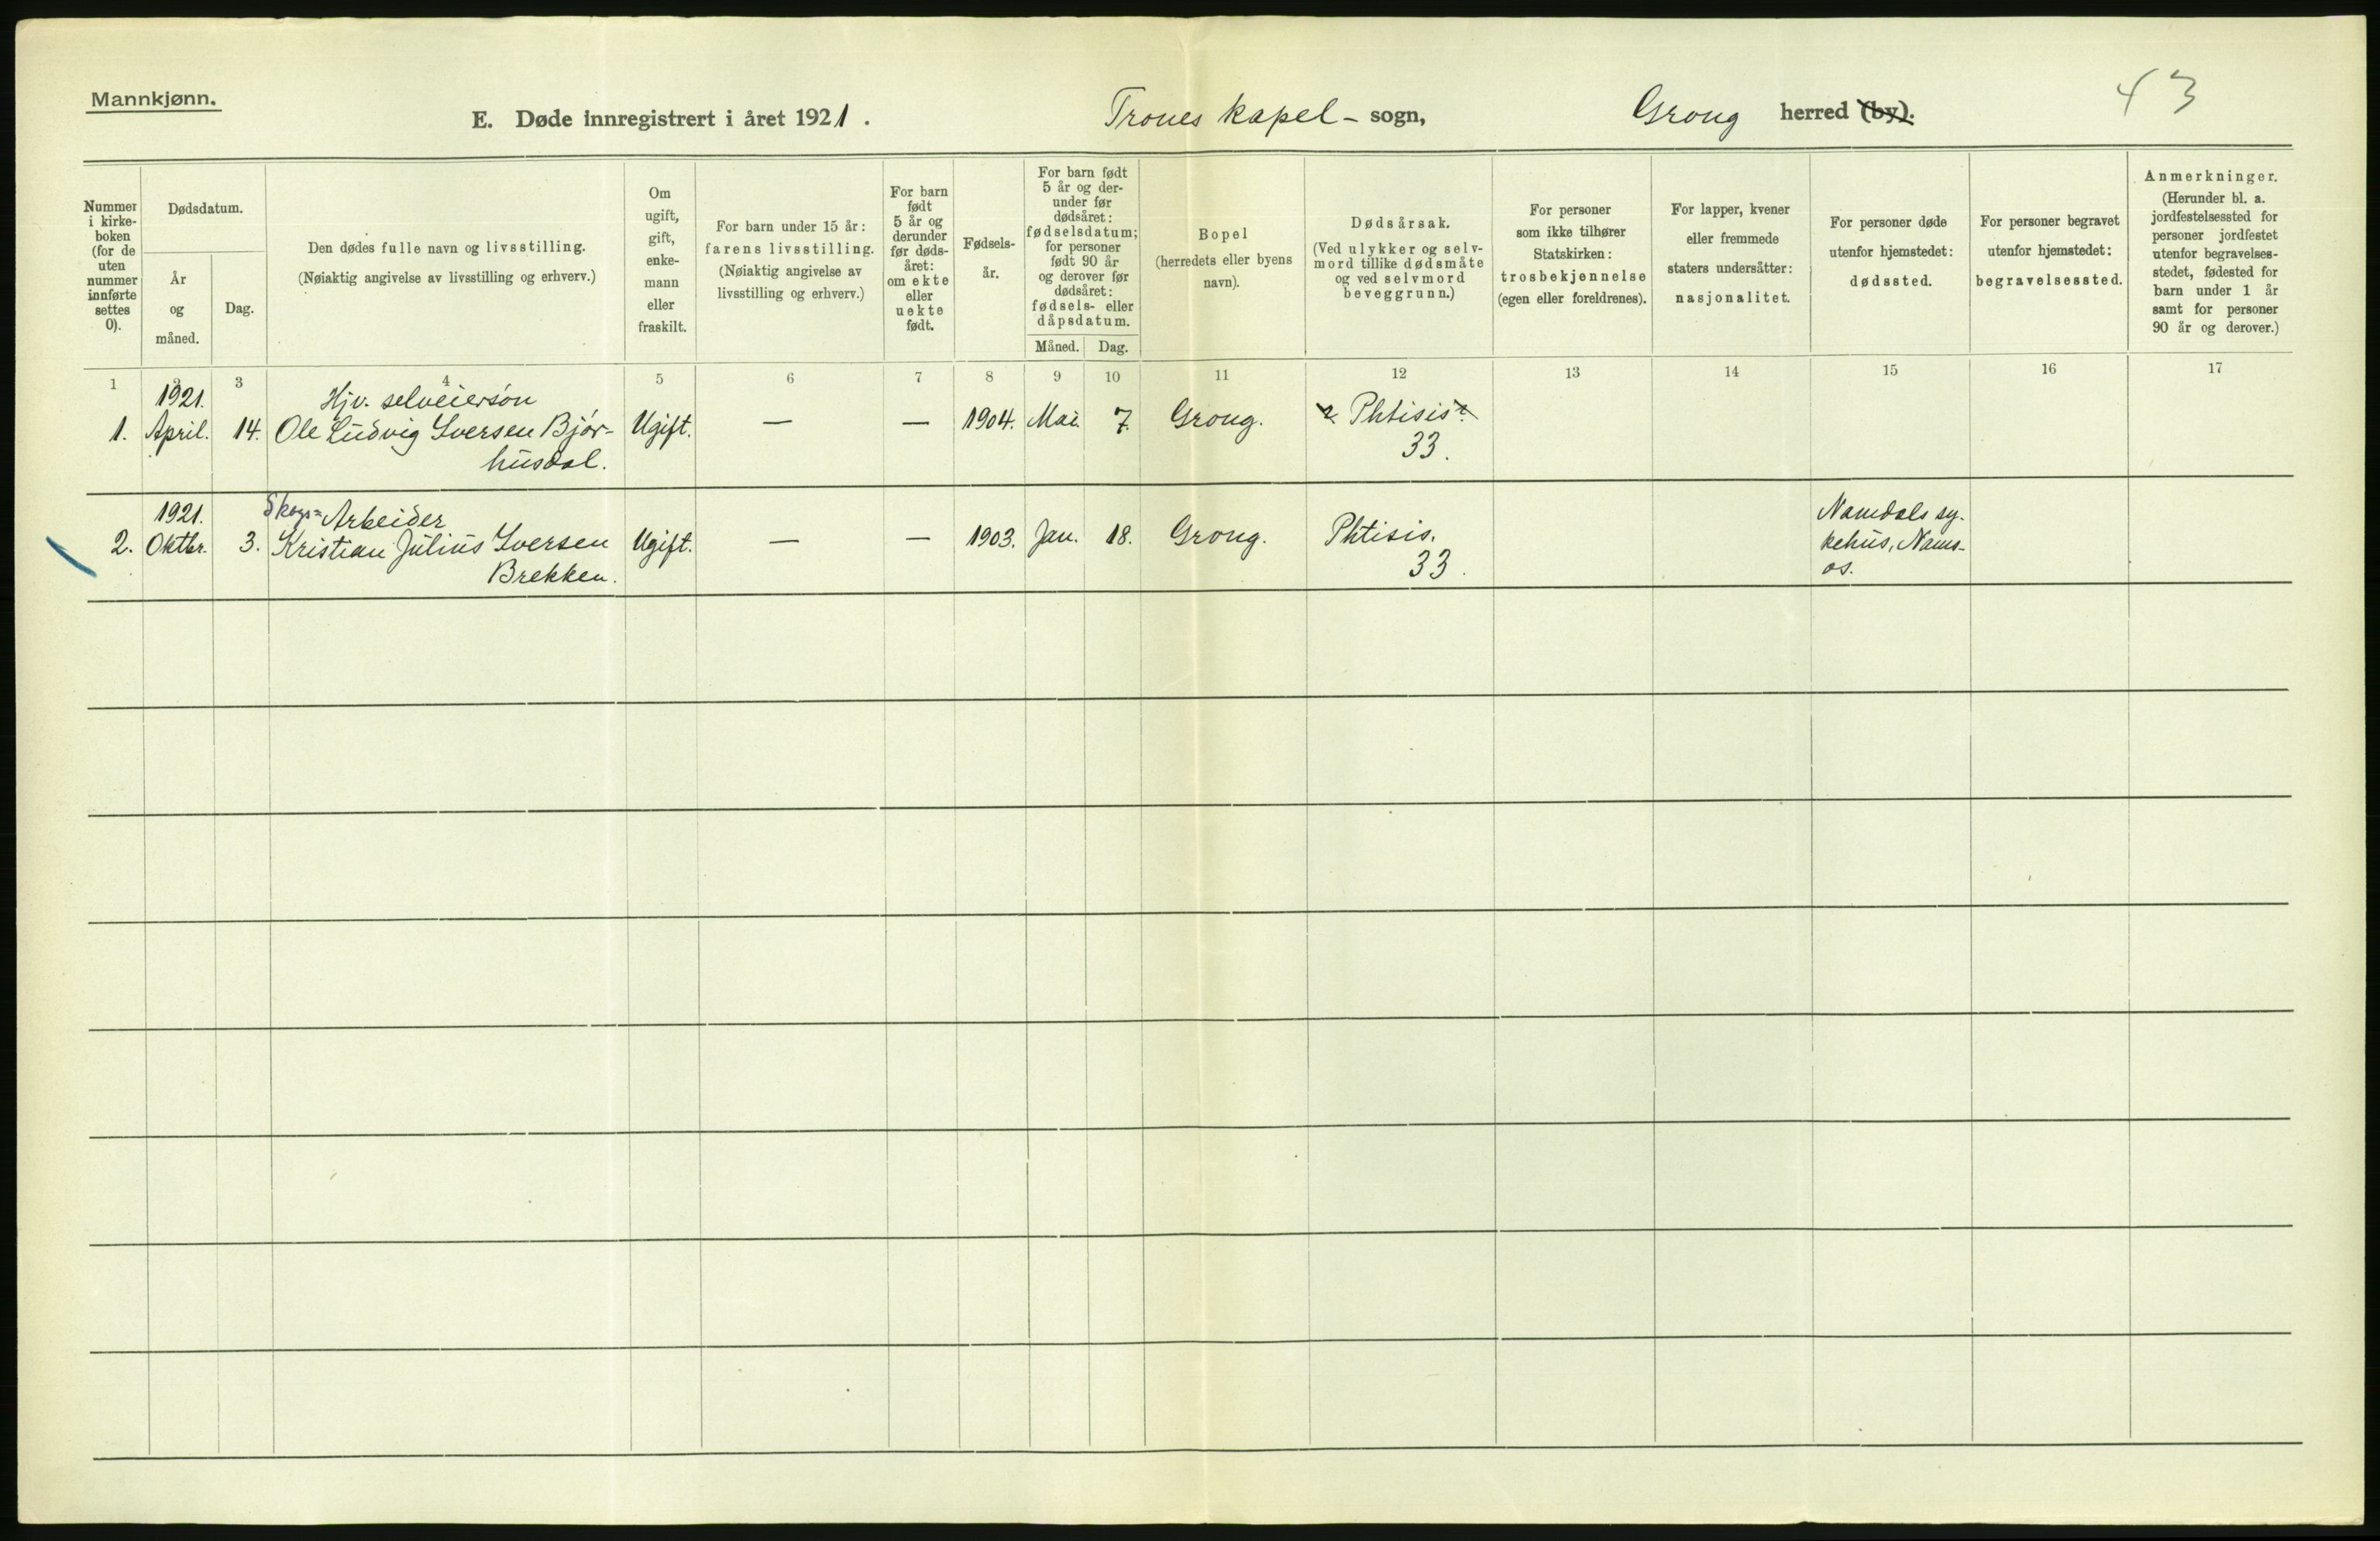 Mannkjønn.
E. Døde innregistrert i året 1921.
Trones kapel- sogn,
Grong herred (by).
43
Nummer i kirke-boken (for de uten nummer innførte settes 0).
Dødsdatum.
År og måned.
Dag.
Den dødes fulle navn og livsstilling.
(Nøiaktig angivelse av livsstilling og erhverv.)
Om ugift, gift, enke-mann eller fraskilt.
For barn under 15 år: farens livsstilling.
(Nøiaktig angivelse av livsstilling og erhverv.)
For barn født 5 år og derunder før døds-året: om ekte eller uekte født.
Fødsels-år.
For barn født 5 år og der-under før dødsåret: fødselsdatum; for personer født 90 år og derover før dødsåret: fødsels- eller dåpsdatum.
Måned.
Dag.
Bopel (herredets eller byens navn).
Dødsårsak.
(Ved ulykker og selv-mord tillike dødsmåte og ved selvmord beveggrunn.)
For personer som ikke tilhører Statskirken: trosbekjennelse (egen eller foreldrenes).
For lapper, kvener eller fremmede staters undersåtter: nasjonalitet.
For personer døde utenfor hjemstedet: dødssted.
For personer begravet utenfor hjemstedet: begravelsessted.
Anmerkninger.
(Herunder bl. a. jordfestelsessted for personer jordfestet utenfor begravelses-stedet, fødested for barn under 1 år samt for personer 90 år og derover.)
1 2 3 4 5 6 7 8 9 10 11 12 13 14 15 16 17
1921. Hjv. selveiersøn
1. April. 14. Ole Ludvig Iversen Bjør- Ugift. — — 1904. Mai. 7. Grong. Phtisis
husdal. 33.
1921. Skogs= Arbeider Namdals sy-
2. Oktbr. 3. Kristian Julius Iversen Ugift. — — 1903. Jan. 18. Grong. Phtisis. kehus, Nams-
Brekken. 33. os.